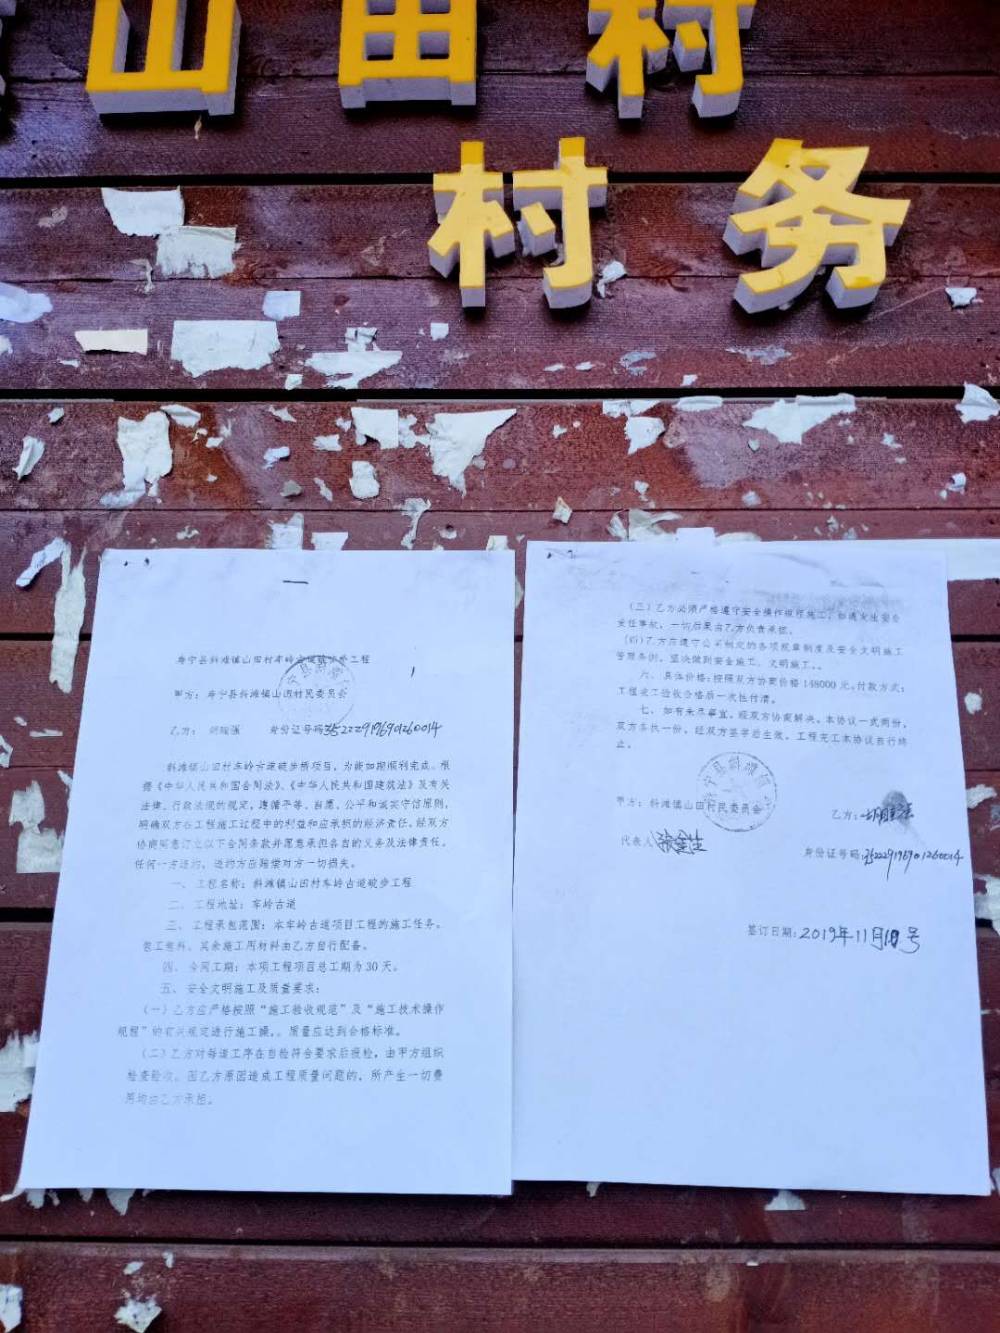 山田村
村务
寿宁县斜滩镇山田村车岭古道碇步桥工程
甲方：寿宁县斜滩镇山田村民委员会
乙方： 身份证号码352229196901260014
斜滩镇山田村车岭古道碇步桥项目，为能如期顺利完成。根
据《中华人民共和国合同法》、《中华人民共和国建筑法》及有关
法律、行政法规的规定，遵循平等、自愿、公平和诚实守信原则，
明确双方在工程施工过程中的利益和应承担的经济责任。经双方
协商同意订立以下合同条款并愿意承担各自的义务及法律责任。
任何一方违约，违约方应赔偿对方一切损失。
一、工程名称：斜滩镇山田村车岭古道碇步工程
二、工程地址：车岭古道
三、工程承包范围：本车岭古道项目工程的施工任务。
包工包料、其余施工用材料由乙方自行配备。
四、合同工期：本项工程项目总工期为30天。
五、安全文明施工及质量要求：
（一）乙方应严格按照“施工验收规范”及“施工技术操作
规程”的有关规定进行施工操。。质量应达到合格标准。
（二）乙方对每道工序在自检符合要求后报检，由甲方组织
检查验收。因乙方原因造成工程质量问题的，所产生一切费
用均由乙方承担。
（三）乙方必须严格遵守安全操作规程施工，如遇发生安全
责任事故，一切后果由乙方负责承担。
（四）乙方应遵守公司制定的各项规章制度及安全文明施工
管理条例，坚决做到安全施工、文明施工。。
六、具体价格：按照双方协商价格148000元。付款方式：
工程竣工验收合格后一次性付清。
七、如有未尽事宜，经双方协商解决。本协议一式两份，
双方各执一份，经双方签字后生效，工程完工本协议自行终
止。
甲方：斜滩镇山田村民委员会
乙方：
代表人：
身份证号码：352229196901260014
签订日期：2019年11月10号